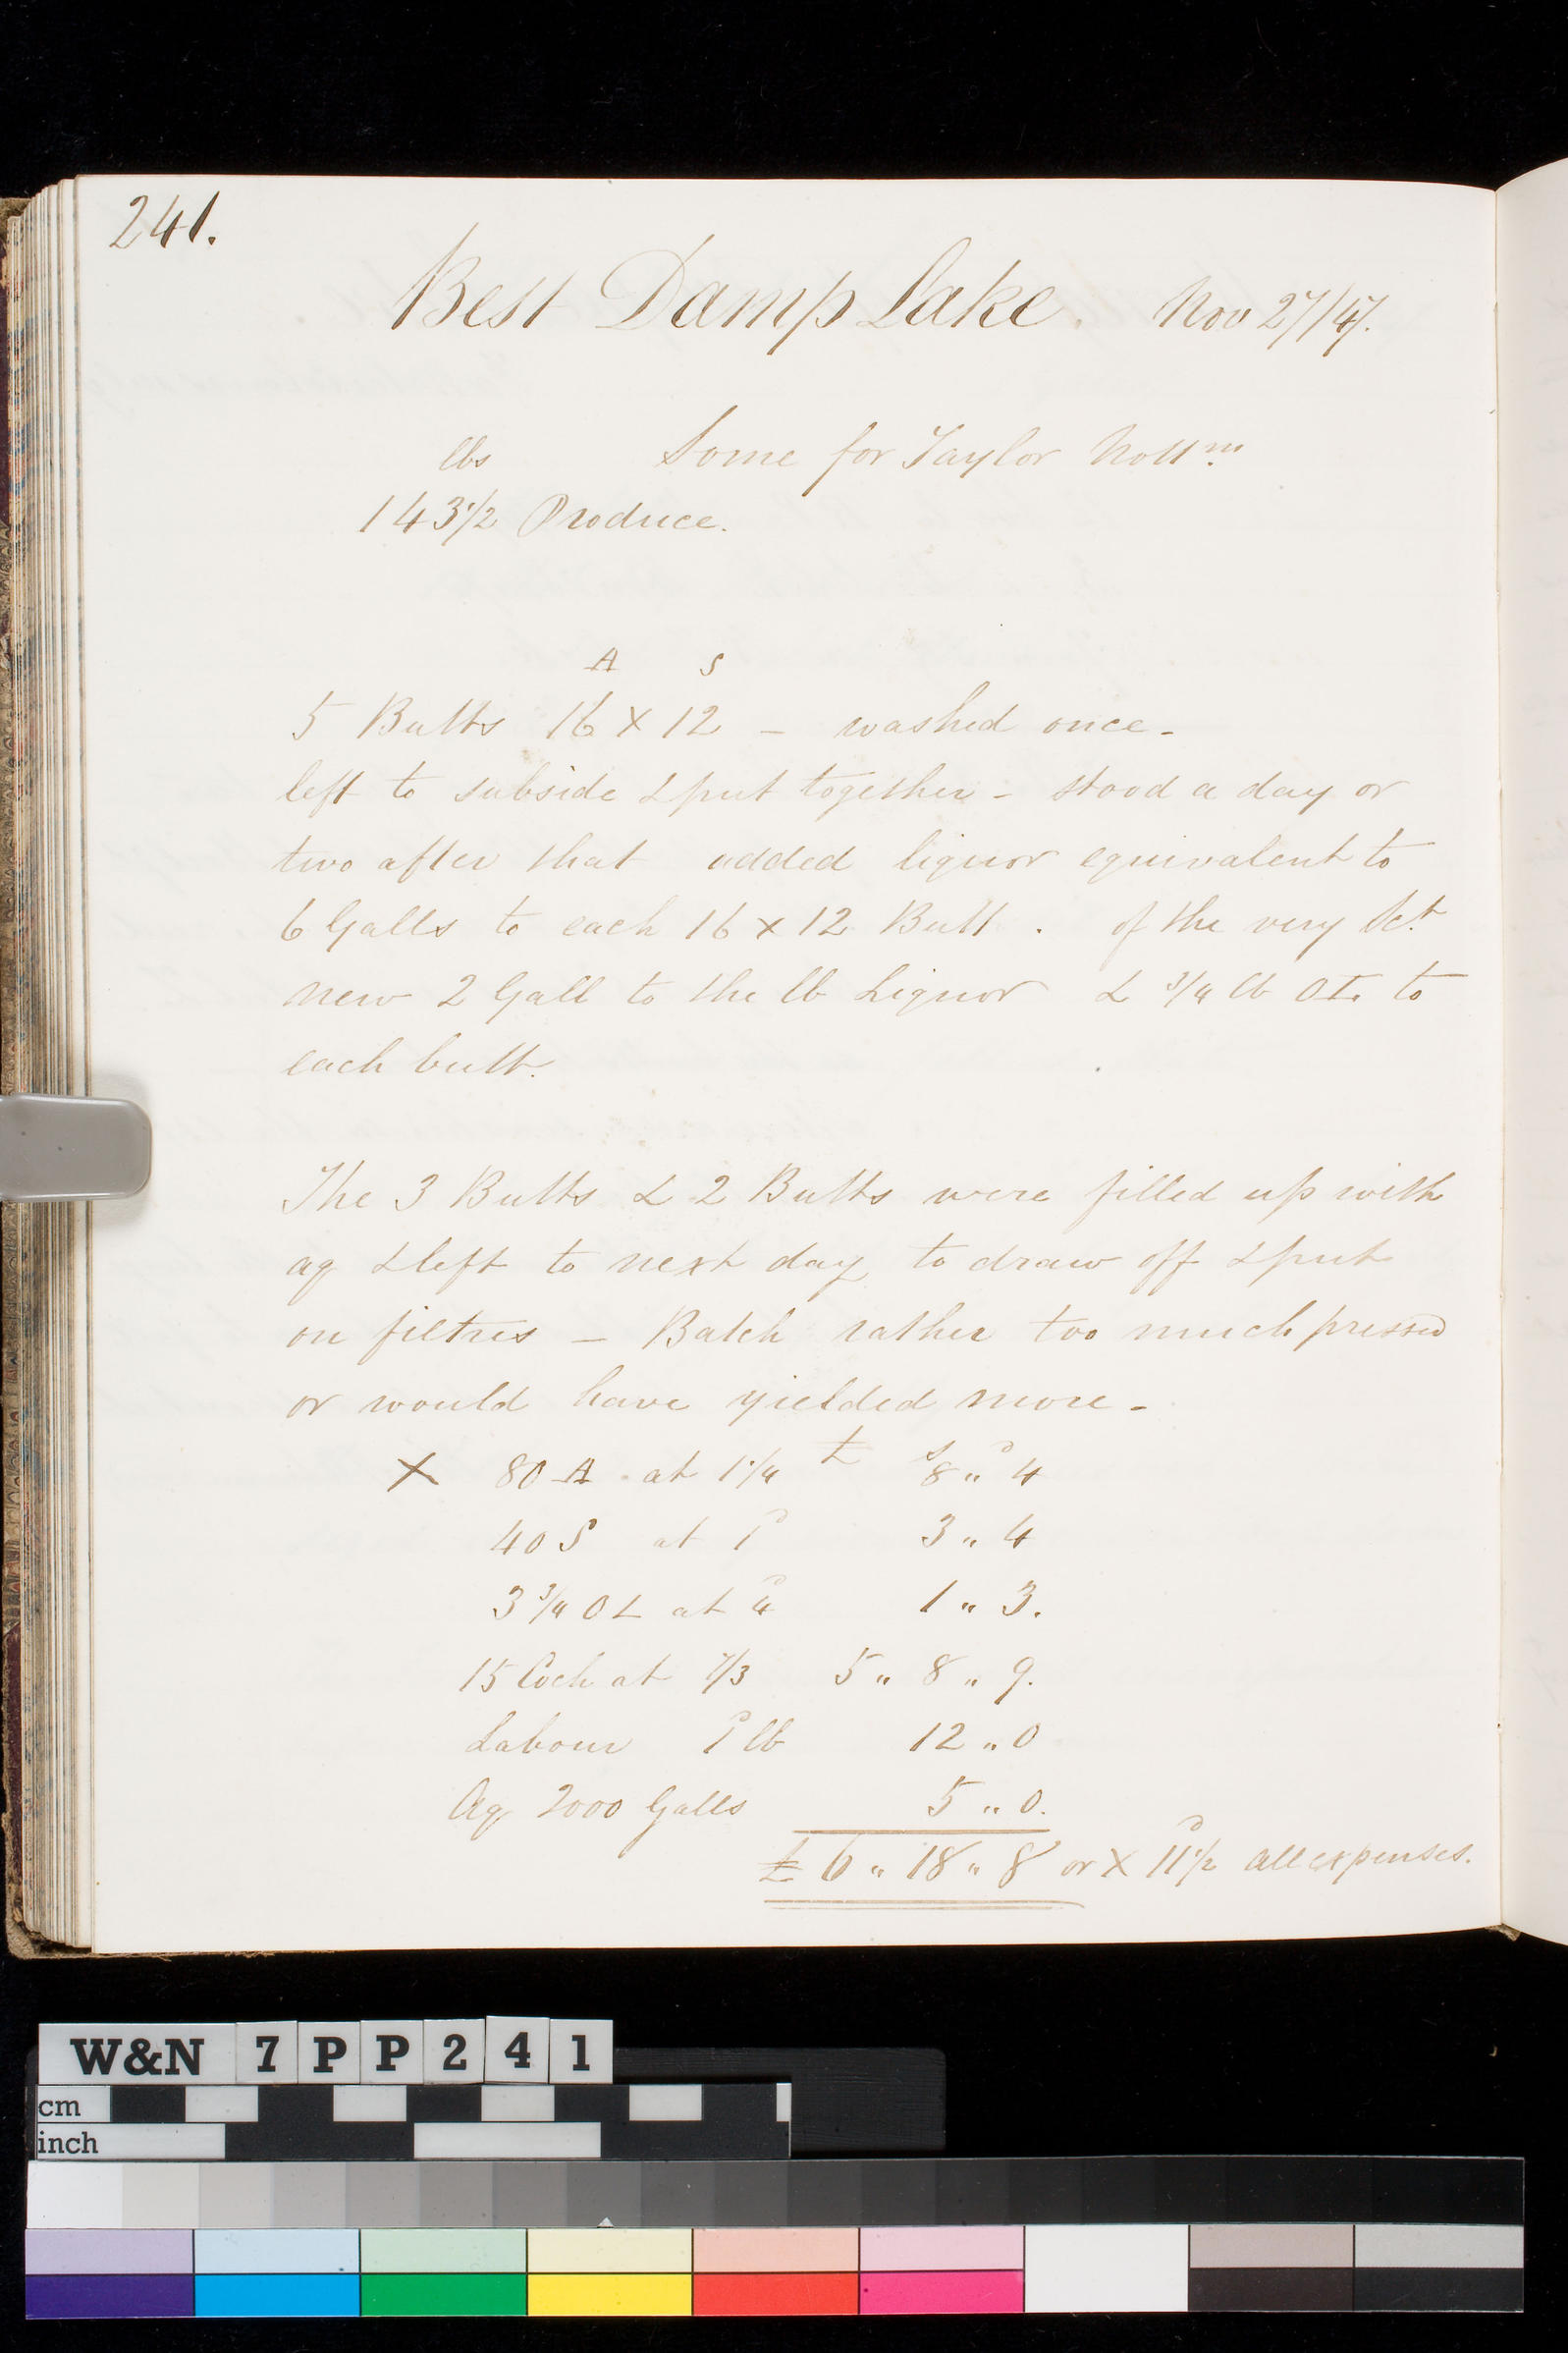 241.
Best Damp Lake. Nov 27/47.
lbs Some for Taylor Nottm.
143 1/2 Produce.
A S
5 Butts 16 x 12 - washed once -
left to subside & put together - stood a day or
two after that added liquor equivalent to
6 Galls to each 16 x 12 Butt. of the very bst
new 2 Gall to the lb Liquor & 3/4 lb to
each butt.
The 3 Butts & 2 Butts were filled up with
aq & left to next day to draw off & put
on filtres - Batch rather too much pressed
or would have yielded more -
X 80 A at 1 1/4 £ s 8 " d 4
40 S at 1d 3 " 4
3 3/4 at 4d 1 " 3.
15 Coch at 7/3 5 " 8 " 9.
Labour 1d lb 12 " 0
Aq 2000 Galls 5 " 0.
£ 6 " 18 " 8 or X 11 1/2d all expenses.
W&N 7 P P 2 4 1
cm
inch